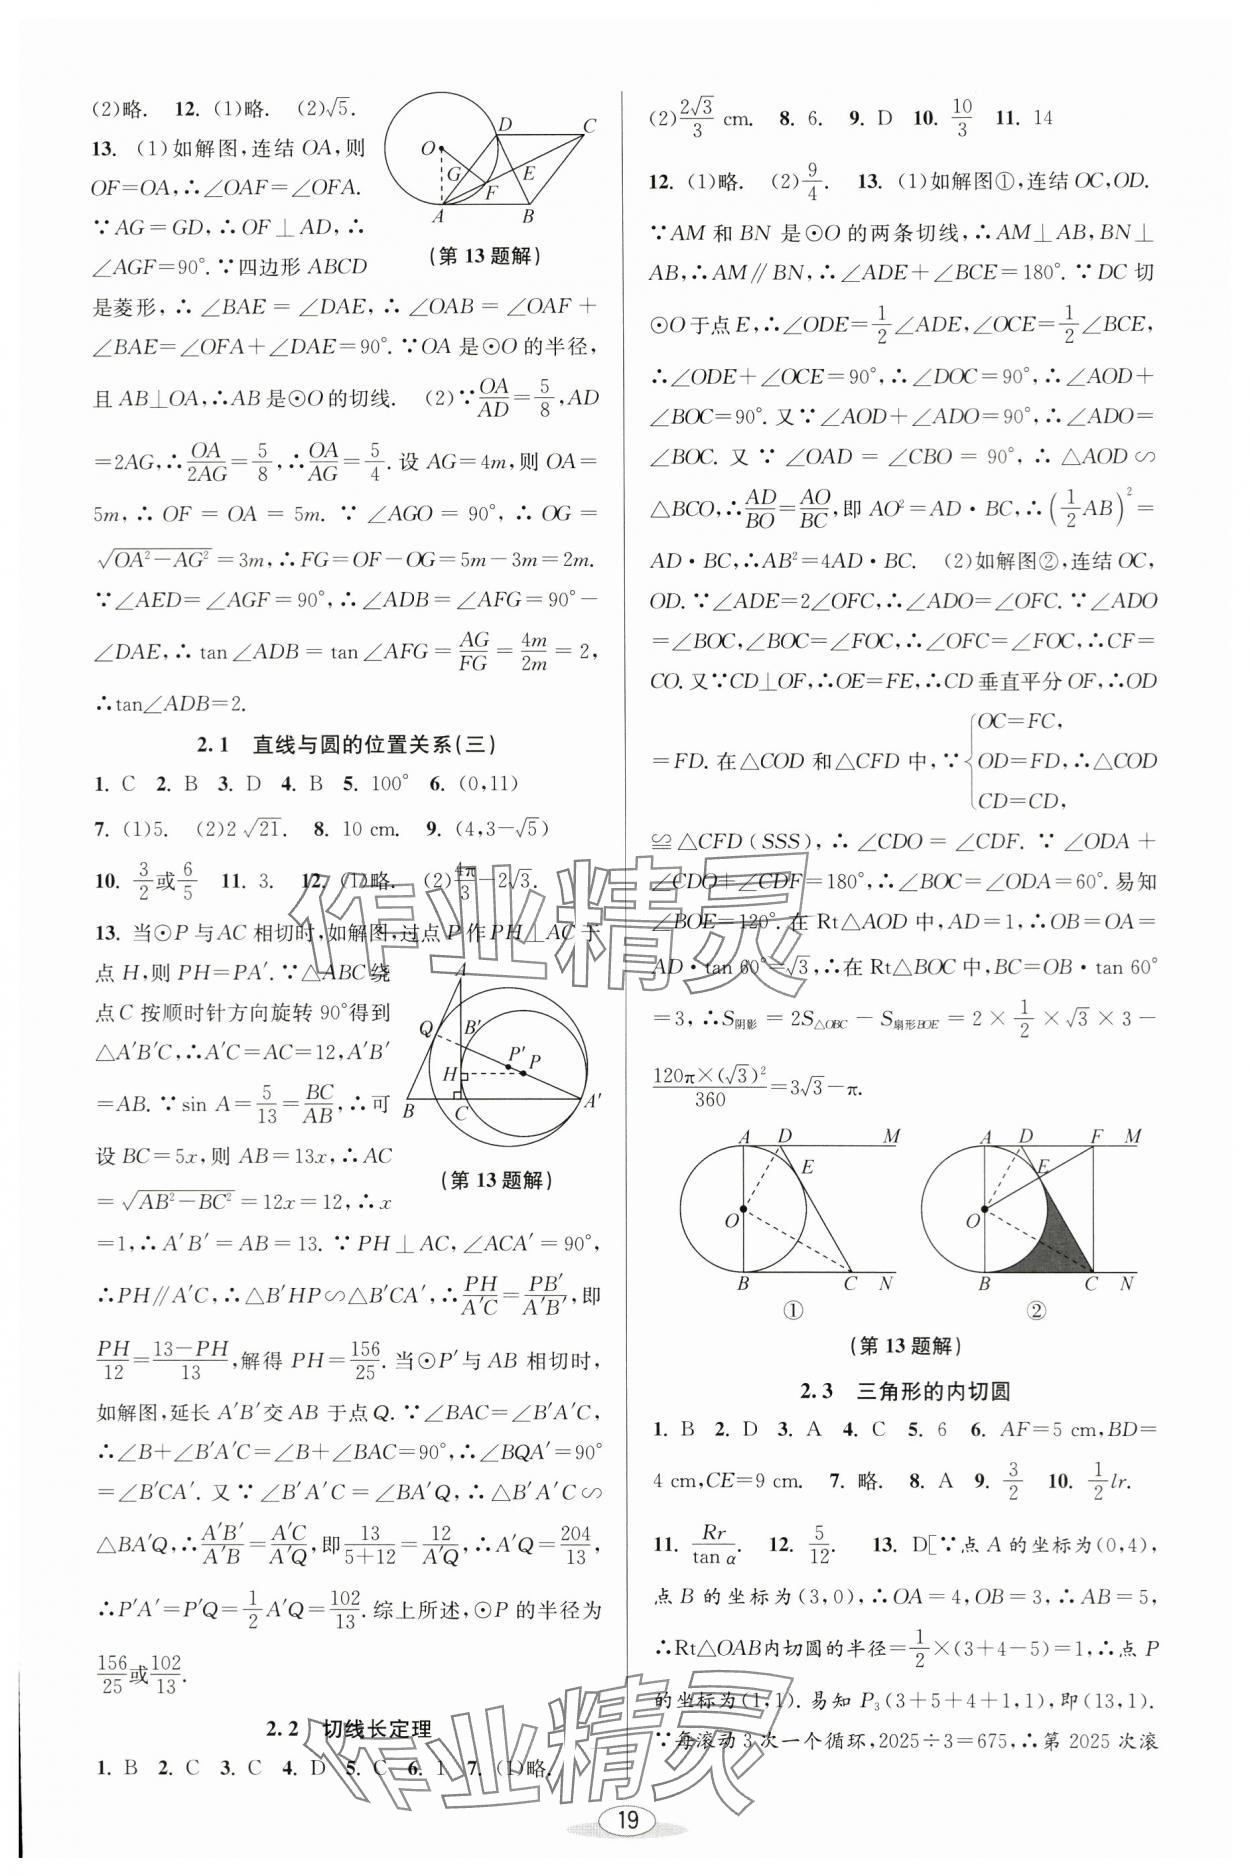 (2)略.  12. (1)略.  (2)√5.
13. (1)如解图,连结OA,则
OF=OA,∴∠OAF=∠OFA.
∵AG=GD,∴OF⊥AD,∴
∠AGF=90°.∵四边形ABCD
(第13题解)
是菱形,∴∠BAE=∠DAE,∴∠OAB=∠OAF+
∠BAE=∠OFA+∠DAE=90°.∵OA是⊙O的半径,
且AB⊥OA,∴AB是⊙O的切线.  (2)∵OA/AD=5/8,AD
=2AG,∴OA/2AG=5/8,∴OA/AG=5/4.设AG=4m,则OA=
5m,∴OF=OA=5m.∵∠AGO=90°,∴OG=
√(OA²-AG²)=3m,∴FG=OF-OG=5m-3m=2m.
∵∠AED=∠AGF=90°,∴∠ADB=∠AFG=90°-
∠DAE,∴tan∠ADB=tan∠AFG=AG/FG=4m/2m=2,
∴tan∠ADB=2.
2.1 直线与圆的位置关系(三)
1. C  2. B  3. D  4. B  5. 100°  6. (0,11)
7. (1)5.  (2)2√21.  8. 10 cm.  9. (4,3-√5)
10. 3/2或6/5  11. 3.  12. (1)略.  (2)4π/3-2√3.
13. 当⊙P与AC相切时,如解图,过点P作PH⊥AC于
点H,则PH=PA′.∵△ABC绕
点C按顺时针方向旋转90°得到
△A′B′C,∴A′C=AC=12,A′B′
=AB.∵sin A=5/13=BC/AB,∴可
设BC=5x,则AB=13x,∴AC
(第13题解)
=√(AB²-BC²)=12x=12,∴x
=1,∴A′B′=AB=13.∵PH⊥AC,∠ACA′=90°,
∴PH∥A′C,∴△B′HP∽△B′CA′,∴PH/A′C=PB′/A′B′,即
PH/12=(13-PH)/13,解得PH=156/25.当⊙P′与AB相切时,
如解图,延长A′B′交AB于点Q.∵∠BAC=∠B′A′C,
∴∠B+∠B′A′C=∠B+∠BAC=90°,∴∠BQA′=90°
=∠B′CA′.又∵∠B′A′C=∠BA′Q,∴△B′A′C∽
△BA′Q,∴A′B′/A′B=A′C/A′Q,即13/(5+12)=12/A′Q,∴A′Q=204/13,
∴P′A′=P′Q=1/2A′Q=102/13.综上所述,⊙P的半径为
156/25或102/13.
2.2 切线长定理
1. B  2. C  3. C  4. D  5. C  6. 1  7. (1)略.
(2)2√3/3 cm.  8. 6.  9. D  10. 10/3  11. 14
12. (1)略.  (2)9/4.  13. (1)如解图①,连结OC,OD.
∵AM和BN是⊙O的两条切线,∴AM⊥AB,BN⊥
AB,∴AM∥BN,∴∠ADE+∠BCE=180°.∵DC切
⊙O于点E,∴∠ODE=1/2∠ADE,∠OCE=1/2∠BCE,
∴∠ODE+∠OCE=90°,∴∠DOC=90°,∴∠AOD+
∠BOC=90°.又∵∠AOD+∠ADO=90°,∴∠ADO=
∠BOC.又∵∠OAD=∠CBO=90°,∴△AOD∽
△BCO,∴AD/BO=AO/BC,即AO²=AD·BC,∴(1/2AB)²=
AD·BC,∴AB²=4AD·BC.  (2)如解图②,连结OC,
OD.∵∠ADE=2∠OFC,∴∠ADO=∠OFC.∵∠ADO
=∠BOC,∠BOC=∠FOC,∴∠OFC=∠FOC,∴CF=
CO.又∵CD⊥OF,∴OE=FE,∴CD垂直平分OF,∴OD
=FD.在△COD和△CFD中,∵{OC=FC, OD=FD, CD=CD,∴△COD
≌△CFD(SSS),∴∠CDO=∠CDF.∵∠ODA+
∠CDO+∠CDF=180°,∴∠BOC=∠ODA=60°.易知
∠BOE=120°.在Rt△AOD中,AD=1,∴OB=OA=
AD·tan 60°=√3,∴在Rt△BOC中,BC=OB·tan 60°
=3,∴S阴影=2S△OBC-S扇形BOE=2×1/2×√3×3-
120π×(√3)²/360=3√3-π.
①  ②
(第13题解)
2.3 三角形的内切圆
1. B  2. D  3. A  4. C  5. 6  6. AF=5 cm,BD=
4 cm,CE=9 cm.  7. 略.  8. A  9. 3/2  10. 1/2lr.
11. Rr/tan α.  12. 5/12.  13. D[∵点A的坐标为(0,4),
点B的坐标为(3,0),∴OA=4,OB=3,∴AB=5,
∴Rt△OAB内切圆的半径=1/2×(3+4-5)=1,∴点P
的坐标为(1,1).易知P₃(3+5+4+1,1),即(13,1).
∵每滚动3次一个循环,2025÷3=675,∴第2025次滚
19
作业精灵
作业精灵